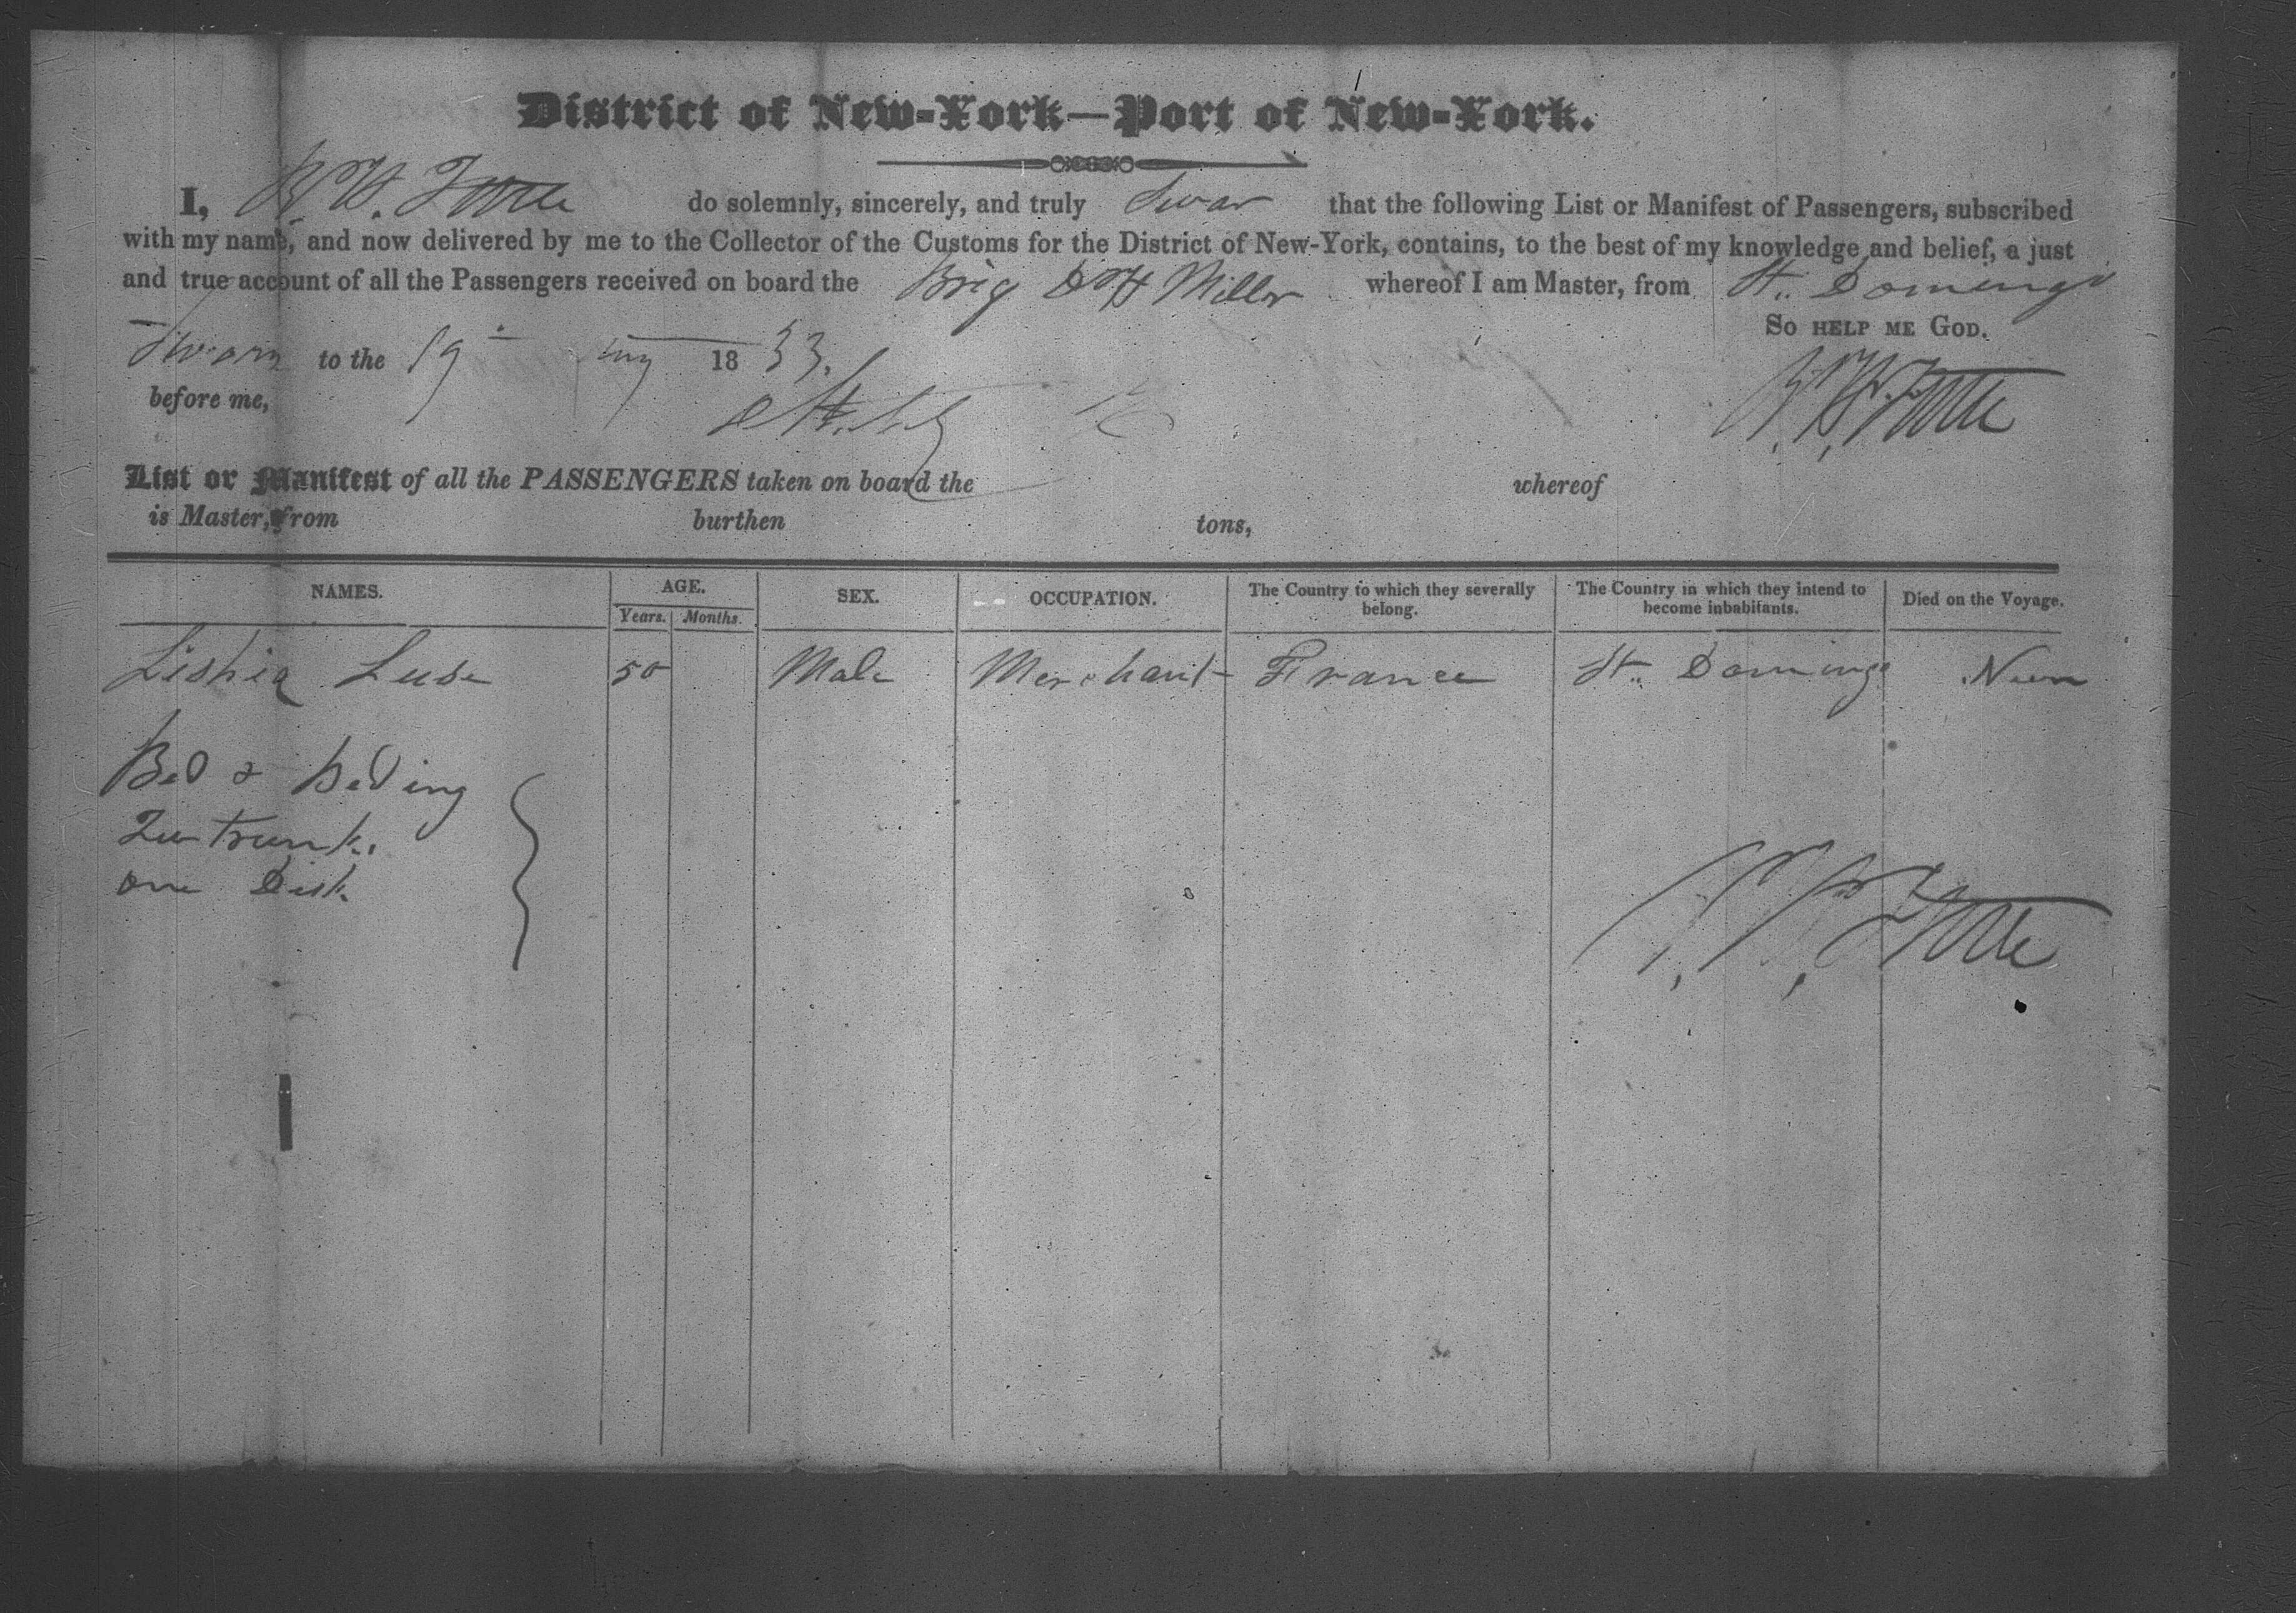 District of New-York—Port of New-York.
I, W. W. do solemnly, sincerely, and truly Swar that the following List or Manifest of Passengers, subscribed
with my name, and now delivered by me to the Collector of the Customs for the District of New-York, contains, to the best of my knowledge and belief, a just
and true account of all the Passengers received on board the Brig Miller whereof I am Master, from St. Domingo
So help me God.
Sworn to the 19 1833.
before me,
List or Manifest of all the PASSENGERS taken on board the whereof
is Master, from burthen tons,
NAMES. AGE. SEX. OCCUPATION. The Country to which they severally belong. The Country in which they intend to become inhabitants. Died on the Voyage.
Years. Months.
50 Male Merchant France St. Domingo
Bed & beding
trunk.
one Desk